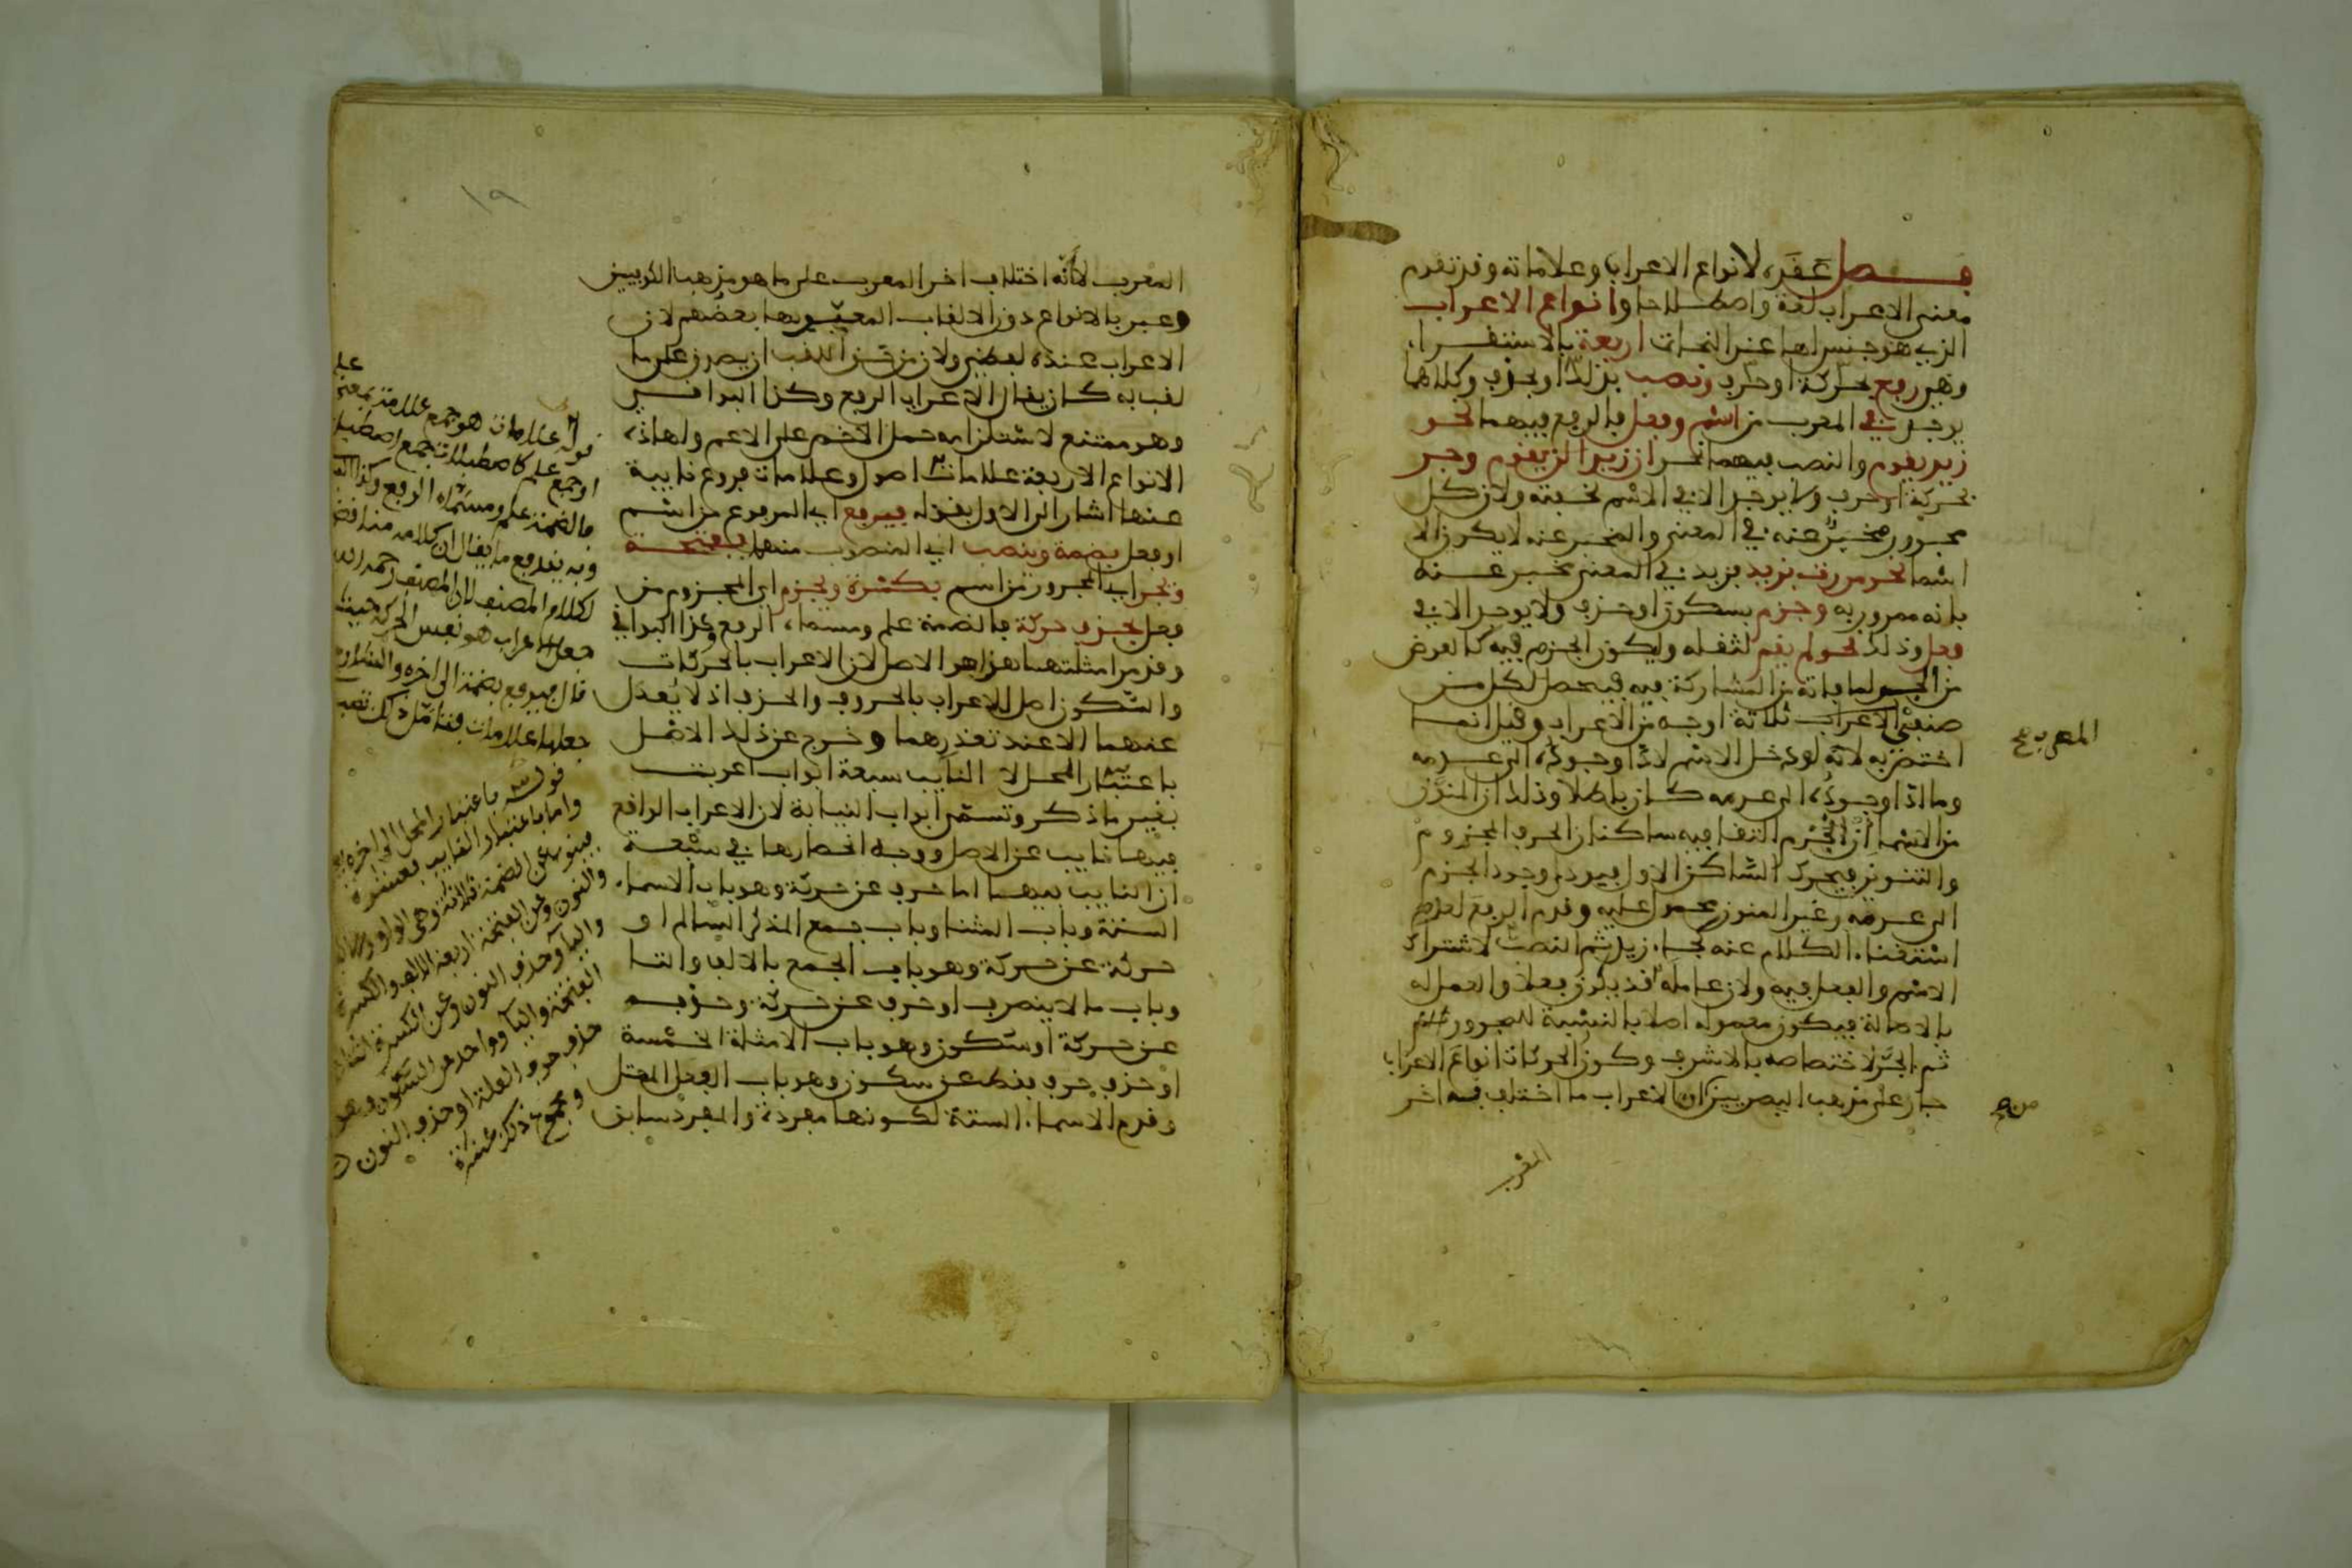 فصل عقده لانواع الاعراب وعلاماته وقد تقدم
معنى الاعراب لغة واصطلاحا وانواع الاعراب
الذي هو جنس لها عند النحات اربعة بالاستقراء
وهي رفع بحركة او حرف ونصب بذلك او بحذف وكلاهما
يوجد في المعرب من اسم وفعل فالرفع فيهما نحو
زيد يقوم والنصب فيهما نحو ان زيدا لن يقوم وجر
بحركة او حرف ولا يوجد الا في الاسم لخفته ولان كل
مجرور مخبر عنه في المعنى والمخبر عنه لا يكون الا
اسما نحو مررت بزيد فزيد في المعنى مخبر عنه
بانه ممرور به وجزم بسكون او حذف ولا يوجد الا في
فعل وذلك نحو لم يقم لثقله وليكون الجزم فيه كالعوض
من الجر لما فاته من المشاركة فيه فيحصل لكل من
صنفي الاعراب ثلاثة اوجه من الاعراب وقيل انما
اختص به لانه لو دخل الاسم لادا وجوده الى عدمه
وما ادا وجوده الى عدمه كان باطلا وذلك ان المنون
من الاسماء ان الجزم التقا فيه ساكنان الحرف المجزوم
والتنوين فيحرك الساكن الاول فيودي وجود الجزم
الى عدمه وغير المنون محمول عليه وقدم الرفع لعدم
استغناء الكلام عنه كجاء زيد ثم النصب لاشتراك
الاسم والفعل فيه ولان عامله قد يكون فعلا والعمل له
بالاصالة فيكون معموله اصلا بالنسبة للمجرور
ثم الجر لاختصاصه بالاشرف وكون الحركات انواع الاعراب
جار على مذهب البصريين ان الاعراب ما اختلف به اخر
المعرب
المعرب صح
من صح
١٩
المعرب لا انه اختلاف اخر المعرب على ما هو مذهب الكوفيين
وعبر بالانواع دون الالقاب المعبر بها بعضهم لان
الاعراب عنده لفظي ولان من شان اللقب ان يصدق على ما
لقب به كان يقال الاعراب الرفع وكذا البواقي
وهو ممتنع لاستلزامه حمل الاخص على الاعم ولهاذه
الانواع الاربعة علامات اصول وعلامات فروع نايبة
عنها اشار الى الاول بقوله فيرفع اي المرفوع من اسم
او فعل بضمة وينصب اي المنصوب منهما بفتحة
ويجر اي المجرور من اسم بكسرة ويجزم اي المجزوم من
فعل بحذف حركة فالضمة علم ومسماه الرفع وكذا البواقي
وقد مر امثلتها هذا هو الاصل لان الاعراب بالحركات
والسكون اصل للاعراب بالحروف والحذف اذ لا يعدل
عنهما الا عند تعذرهما وخرج عن ذلك الاصل
باعتبار المحل لا النايب سبعة ابواب اعربت
بغير ما ذكر وتسمى ابواب النيابة لان الاعراب الواقع
فيها نايب عن الاصل ووجه انحصارها في سبعة
ان النايب فيها اما حرف عن حركة وهو باب الاسماء
الستة وباب المثنا وباب جمع المذكر السالم او
حركة عن حركة وهو باب الجمع بالالف والتا
وباب ما لا ينصرف او حرف عن حركة وحذفه
عن حركة او سكون وهو باب الامثلة الخمسة
او حذف حرف فقط عن سكون وهو باب الفعل المعتل
وقدم الاسماء الستة لكونها مفردة والمفرد سابق
قوله علامات هو جمع علامة بمعنى علم
او جمع علم كاصطبلات جمع اصطبل
فالضمة علم ومسماه الرفع وكذا
وبه يندفع ما يقال ان كلامه مناقض
لكلام المصنف لان المصنف رحمه الله
جعل الاعراب هو نفس الحركة حيث
قال فيرفع بضمة الى اخره والشارح
جعلها علامات فتامل ذلك
قوله باعتبار المحل الى اخره
واما باعتبار النايب فعشرة
فينوب عن الضمة ثلاثة وهي الواو والالف
والنون وعن الفتحة اربعة الالف والكسرة
واليا وحذف النون وعن الكسرة اثنان
الفتحة واليا وواحد عن السكون وهو
حذف حرف العلة او حذف النون
ومجموع ذلك عشرة